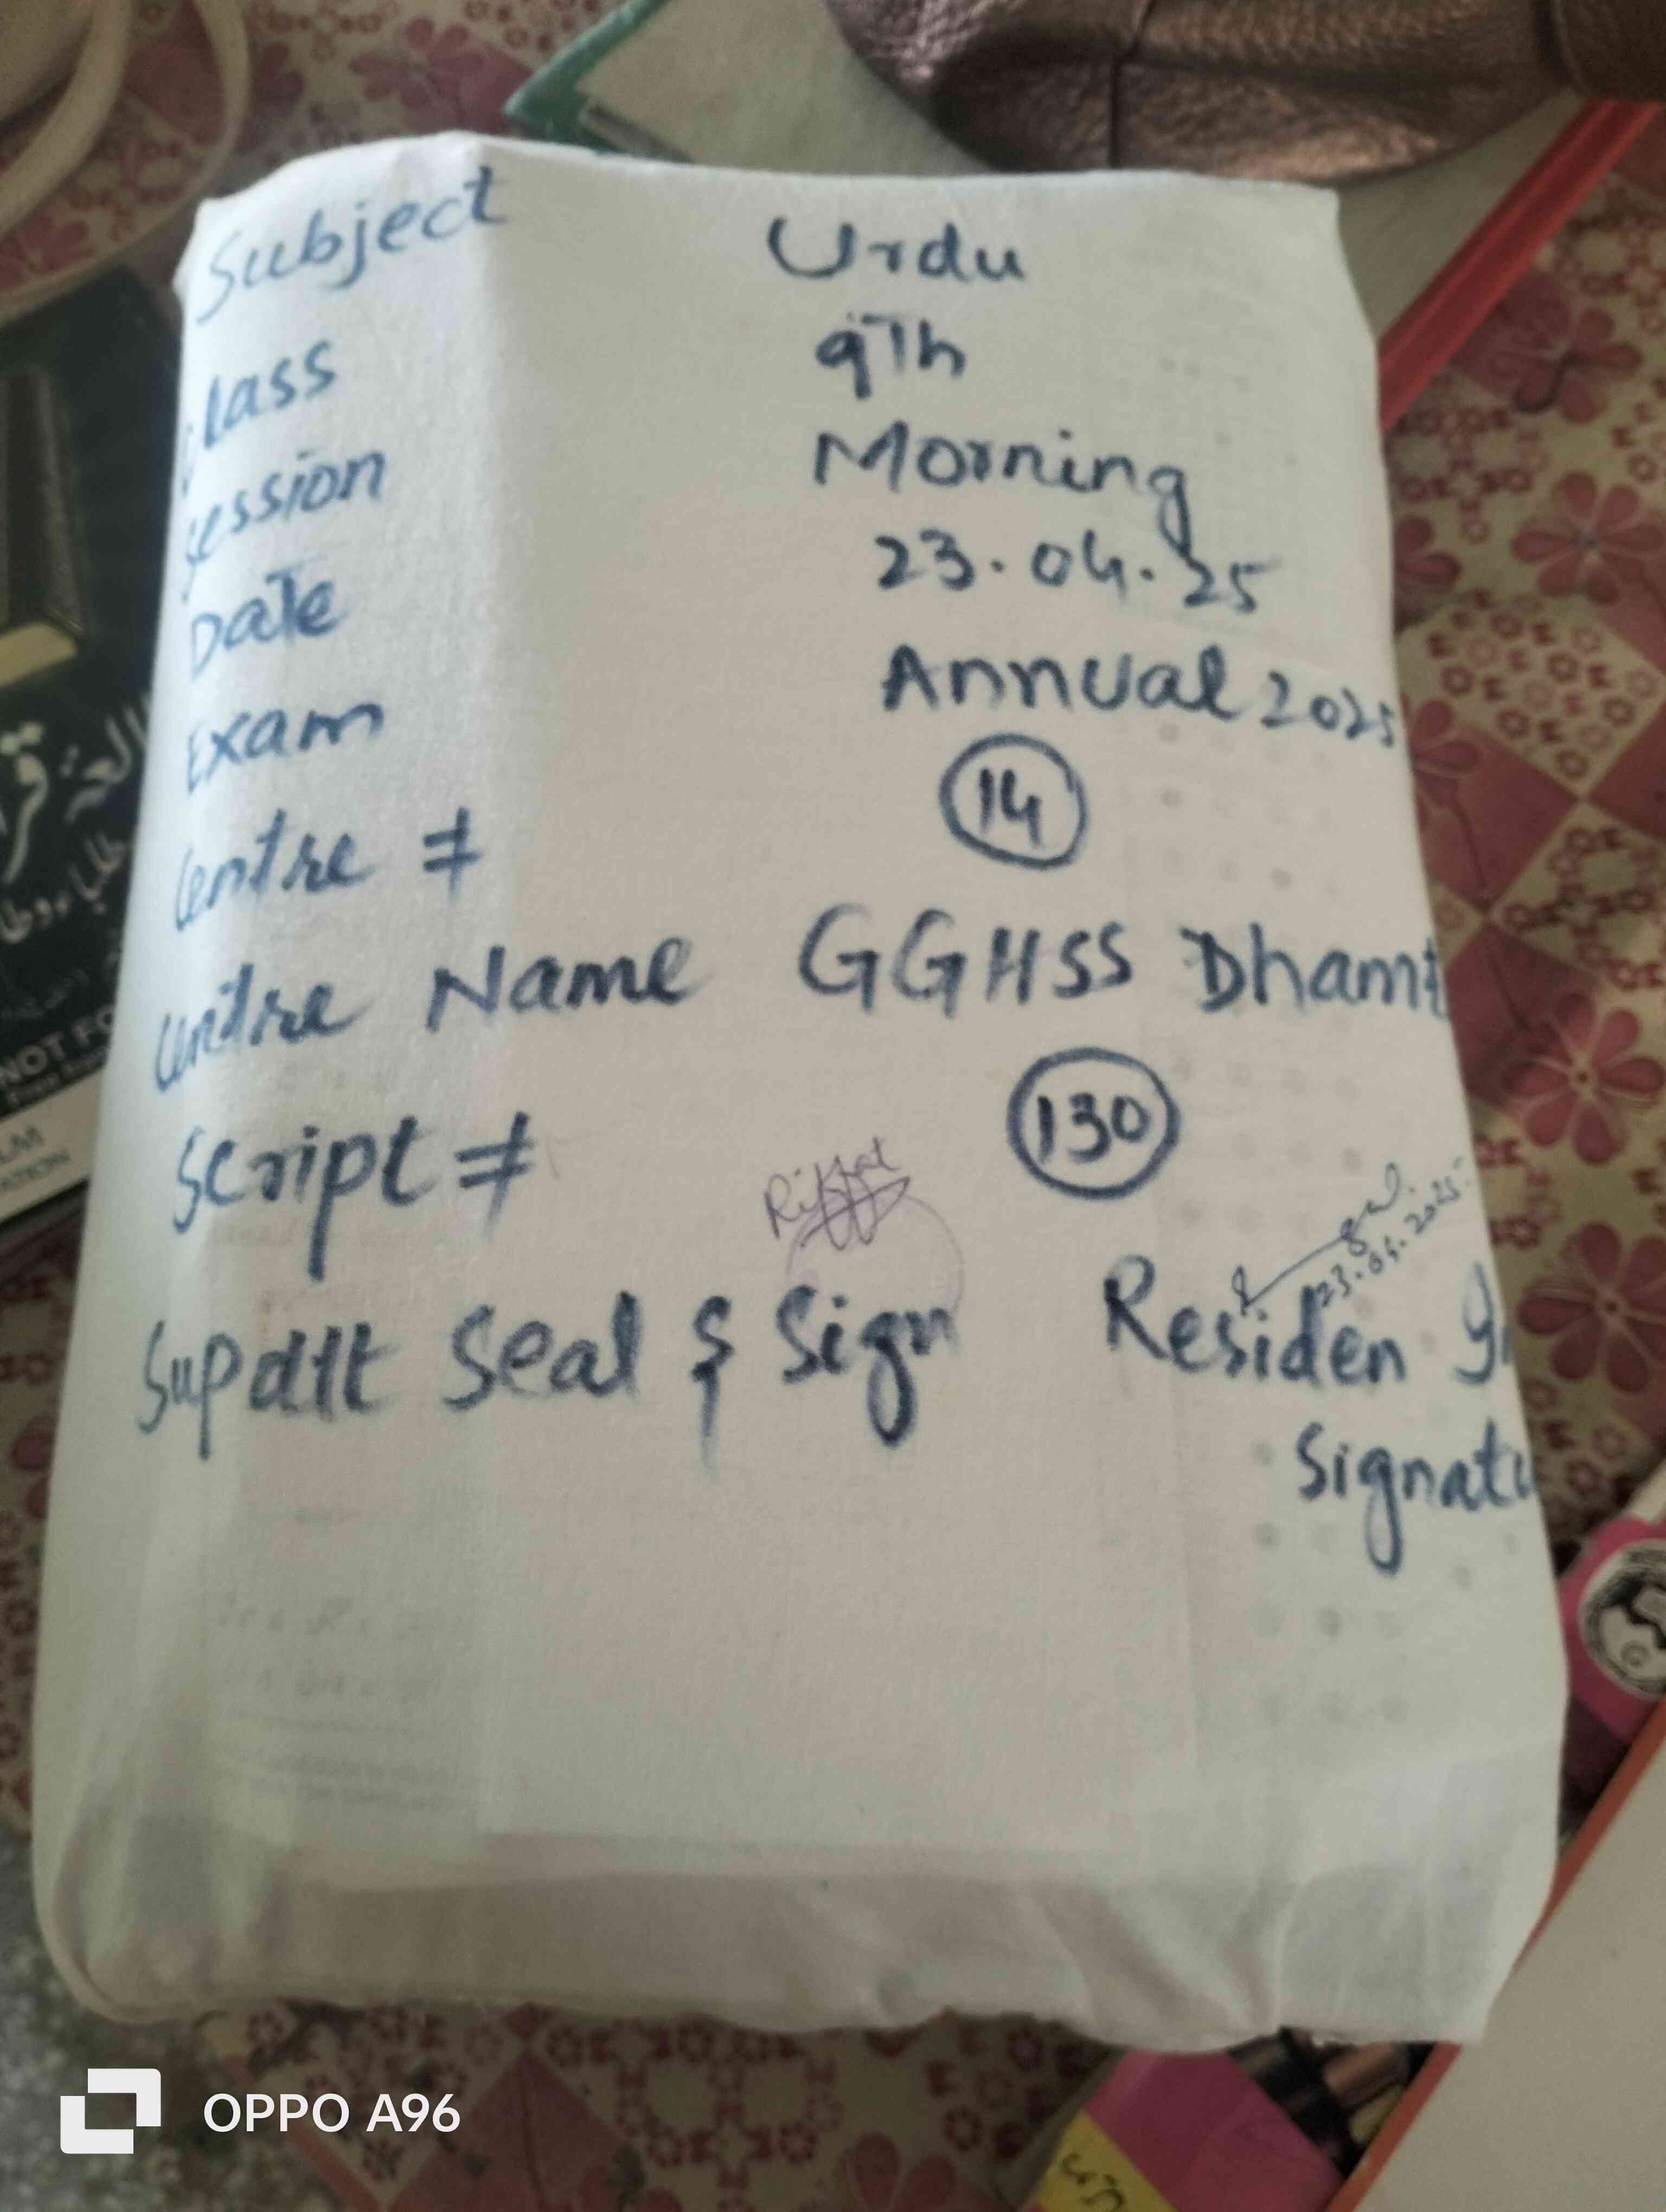 Subject Urdu
Class 9Th
Session Morning
Date 23.04.25
Exam Annual 2025
Centre # 14
Centre Name GGHSS Dhamt
Script # 130
Riffat
23.04.2025
Supdtt Seal & Sign Residen In
Signatu
قر
طلباء وطا
NOT FO
LM
ATION
OPPO A96